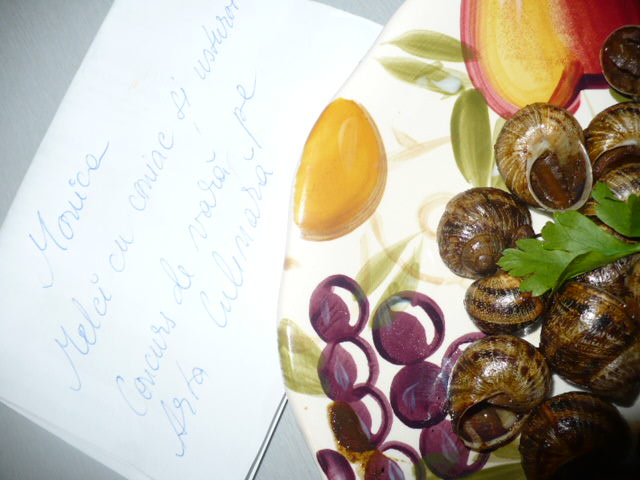 Monica
Melci cu coniac si usturoi
Concurs de vară pe
Arta Culinară